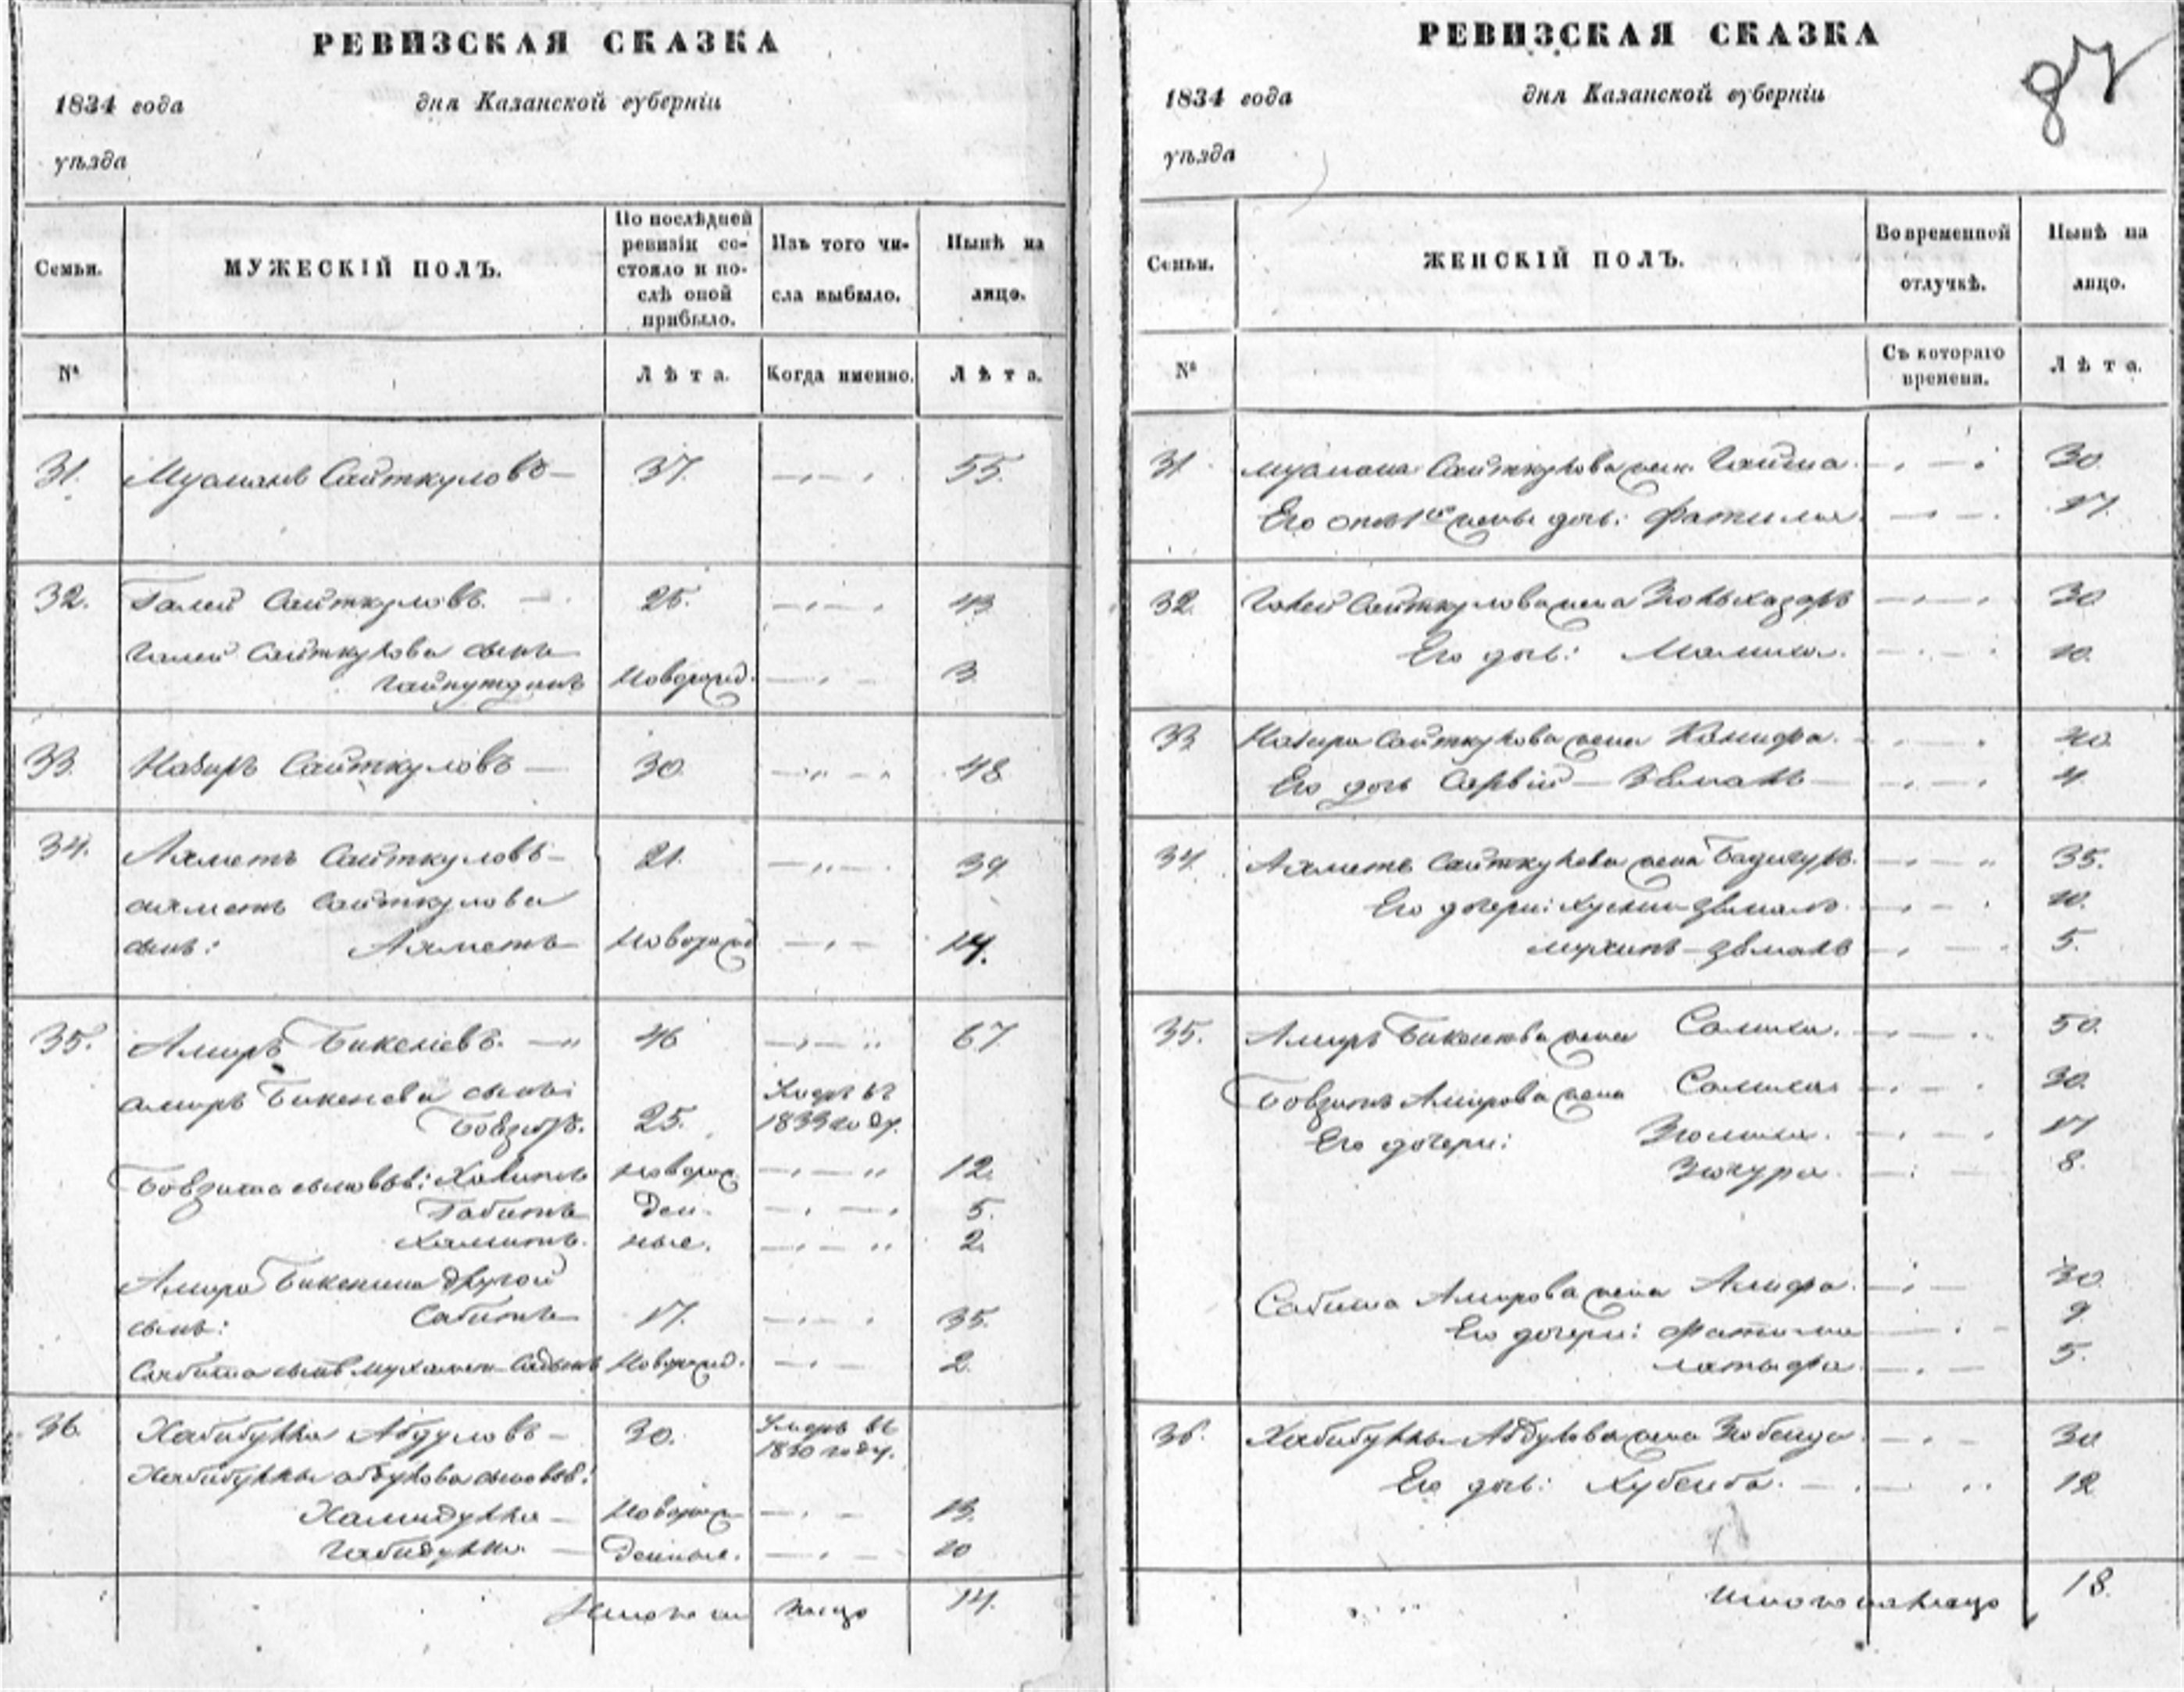 РЕВИЗСКАЯ СКАЗКА
1834 года дня Казанской губерніи
уѣзда
Семьи. МУЖЕСКІЙ ПОЛЪ. По послѣдней ревизіи состояло и послѣ оной прибыло. Изъ того числа выбыло. Нынѣ на лицо.
№ Лѣта. Когда именно. Лѣта.
31. Сайткуловъ 37. 55.
32. Галей Сайткуловъ. 25. 43
Галей Сайткулова сынъ
Гайнутдинъ Новорожд. 3
33. Сайткуловъ 30 48
34. Ахметъ Сайткуловъ 21. 39
ахметъ Сайткулова
сынъ: Ахметъ Новорожд 14.
35. Амиръ Бикеневъ. 46 67
амиръ Бикенева сынъ: Умеръ въ
25. 1833 году.
сыновья: Халитъ новорож 12.
Габитъ ден- 5.
Хамитъ. ные. 2
Амира Бикенина другой
сынъ: Сабитъ 17. 35.
Сабита сынъ Мухамет-Садыкъ Новорожд. 2.
36. Хабибулла Абдуловъ 30. Умеръ въ
1830 году.
Хабибуллы абдулова сыновья:
Хамидулла Новорож 13.
Габидулла денные. 10
Итого на лицо 14.
РЕВИЗСКАЯ СКАЗКА
87
1834 года дня Казанской губерніи
уѣзда
Семьи. ЖЕНСКІЙ ПОЛЪ. Во временной отлучкѣ. Нынѣ на лицо.
№ Съ котораго времени. Лѣта.
31 Сайткулова жена 30
Его от 1ой жены дочь: Фатима 17.
32. Галей Сайткулова жена 30
Его дочь: 10.
33 Сайткулова жена 40.
Его дочь 4
34 Ахметъ Сайткулова жена 35.
Его дочери: 10.
5.
35. Амиръ Бикенева жена Салиха. 50.
Амирова жена Салиха 30.
Его дочери: 17
Зюгура. 8.
Сабита Амирова жена Алифа. 30
Его дочери: Фатима 9
латыфа. 5.
36. Хабибуллы Абдулова жена 30
Его дочь: 12
Итого на лицо 18.